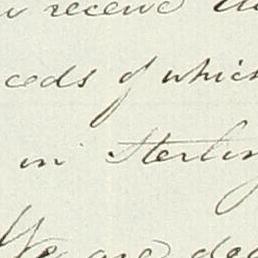 receive
ceeds of which
in Sterling
We are